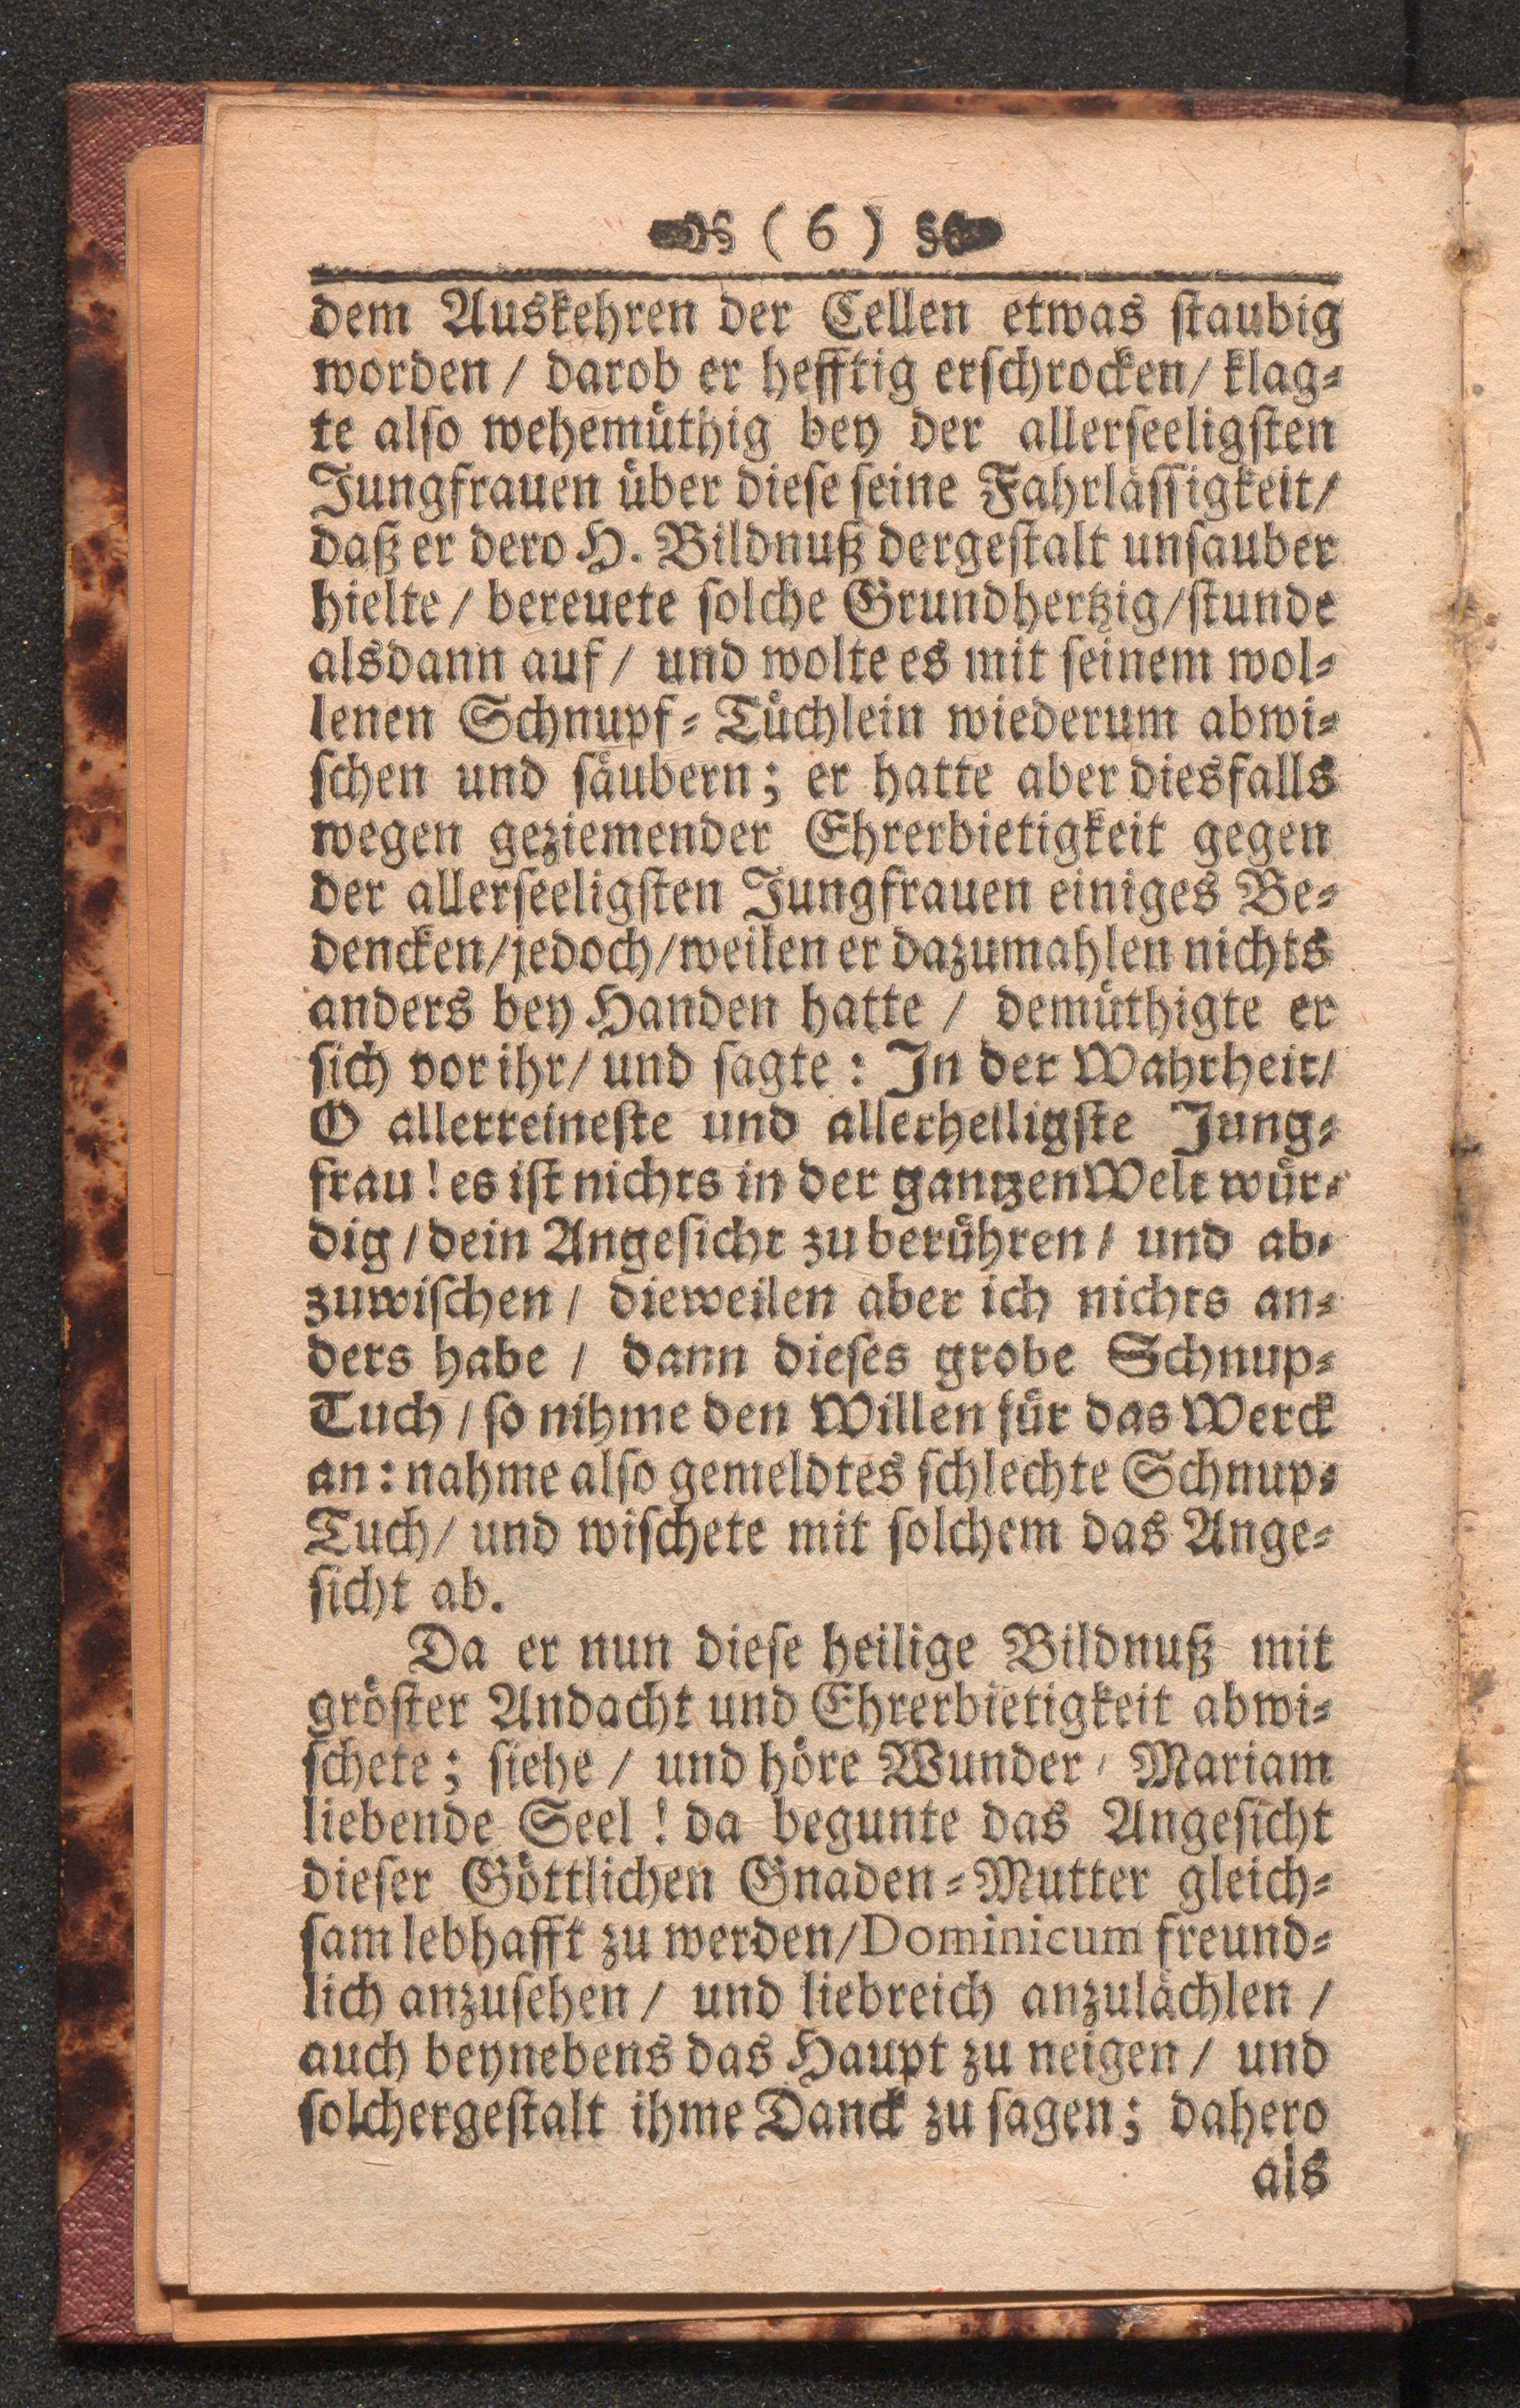 ( 6 )
dem Auskehren der Cellen etwas staubig
worden / darob er hefftig erschrocken / klag-
te also wehemüthig bey der allerseeligsten
Jungfrauen über diese seine Fahrlässigkeit /
daß er dero H. Bildnuß dergestalt unsauber
hielte / bereuete solche Grundhertzig / stunde
alsdann auf / und wolte es mit seinem wol-
lenen Schnupf-Tüchlein wiederum abwi-
schen und säubern; er hatte aber diesfalls
wegen geziemender Ehrerbietigkeit gegen
der allerseeligsten Jungfrauen einiges Be-
dencken / jedoch / weilen er dazumahlen nichts
anders bey Handen hatte / demüthigte er
sich vor ihr / und sagte: In der Wahrheit /
O allerreineste und allerheiligste Jung-
frau! es ist nichts in der gantzen Welt wür-
dig / dein Angesicht zu berühren / und ab-
zuwischen / dieweilen aber ich nichts an-
ders habe / dann dieses grobe Schnup-
Tuch / so nihme den Willen für das Werck
an: nahme also gemeldtes schlechte Schnup-
Tuch / und wischete mit solchem das Ange-
sicht ab.
Da er nun diese heilige Bildnuß mit
gröster Andacht und Ehrerbietigkeit abwi-
schete; siehe / und höre Wunder / Mariam
liebende Seel! da begunte das Angesicht
dieser Göttlichen Gnaden-Mutter gleich-
sam lebhafft zu werden / Dominicum freund-
lich anzusehen / und liebreich anzulächlen /
auch beynebens das Haupt zu neigen / und
solchergestalt ihme Danck zu sagen; dahero
als